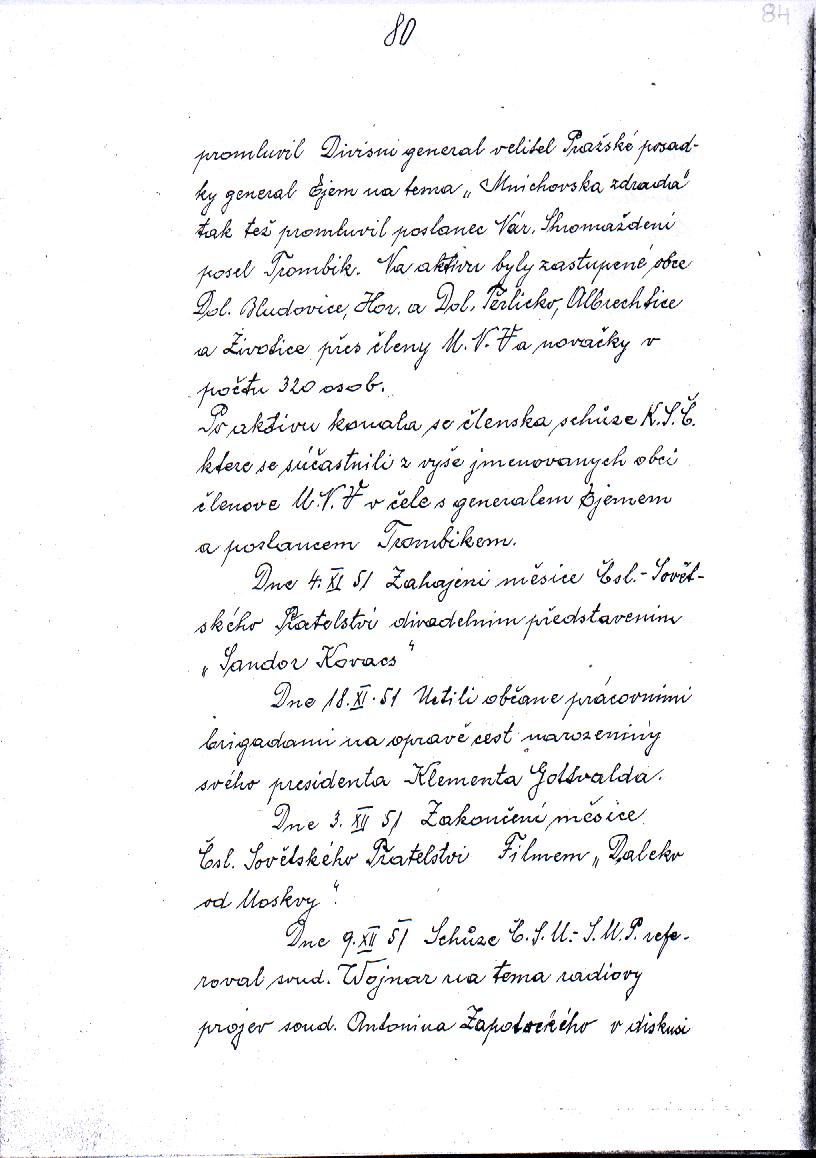 84
80
promluvil Divisni general velitel Pražské posad-
ky general Ejem na tema „Mnichovska zdrada"
tak tež promluvil poslanec Nár. Shromaždení
posel Trombik. Na aktivu byly zastupené obce
Dol. Bludovice, Hor. a Dol. Těrlicko, Albrechtice
a Životice přes členy M.N.V a novačky v
počtu 320 osob.
Po aktivu konala se členska schůze K.S.Č.
ktere se súčastnili z vyše jmenovanych obci
členove M.N.V v čele s generalem Ejemem
a poslancem Trombikem.
Dne 4.XI 51 Zahajeni měsice Čsl.-Sovět-
ského Přatelství divadelnim představenim
„Sandor Kovacs"
Dne 18.XI.51 Uctili občane prácovnimi
brigadami na opravě cest narozeniny
svého presidenta Klementa Gottvalda.
Dne 3. XII 51 Zakončení měsice
Čsl. Sovětského Přatelstvi Filmem „Daleko
od Moskvy".
Dne 9.XII 51 Schůze Č.S.M.-S.M.P. refe-
roval soud. Wojnar na tema radiovy
projev soud. Antonina Zapotockého v diskusi